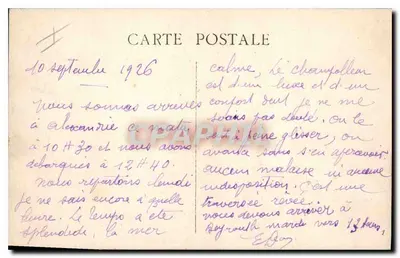 CARTE POSTALE
10 septembre 1926
Nous sommes arrivés
à alexandrie ce mat
à 10 H 30 et nous avons
débarqués à 12 H 40.
Nous repartons lundi
je ne sais encore à quelle
heure. Le temps a été
splendide, la mer
calme, Le Champollion
est d'un luxe et d'un
confort dont je ne me
suis pas douté. On le
glisser, on
avance sans s'en apercevoir
aucun malaise ni aucune
indisposition. C'est une
traversée rêvée.
nous devons arriver à
Beyrouth mardi vers 13 heures,